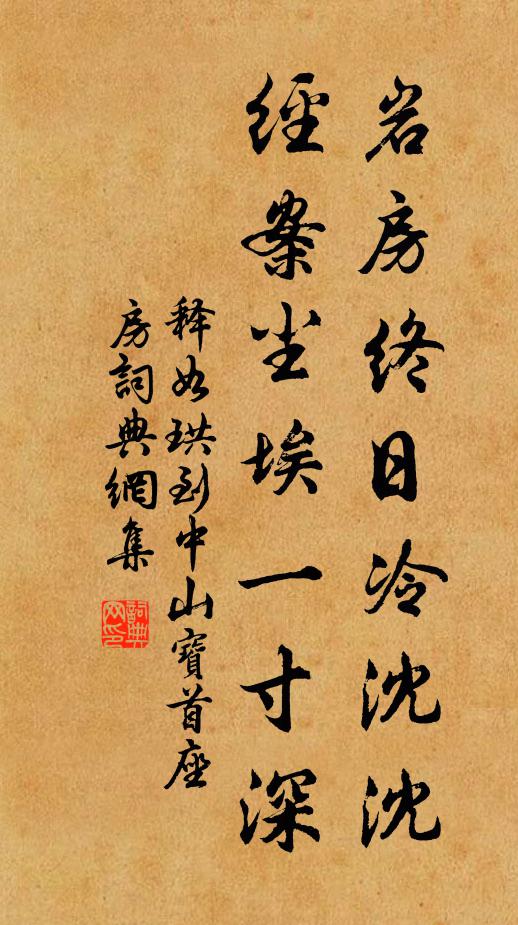 岩房终日冷沈沈
经案尘埃一寸深
释如珙到中山寶首座
房詞典網集
詞典网印